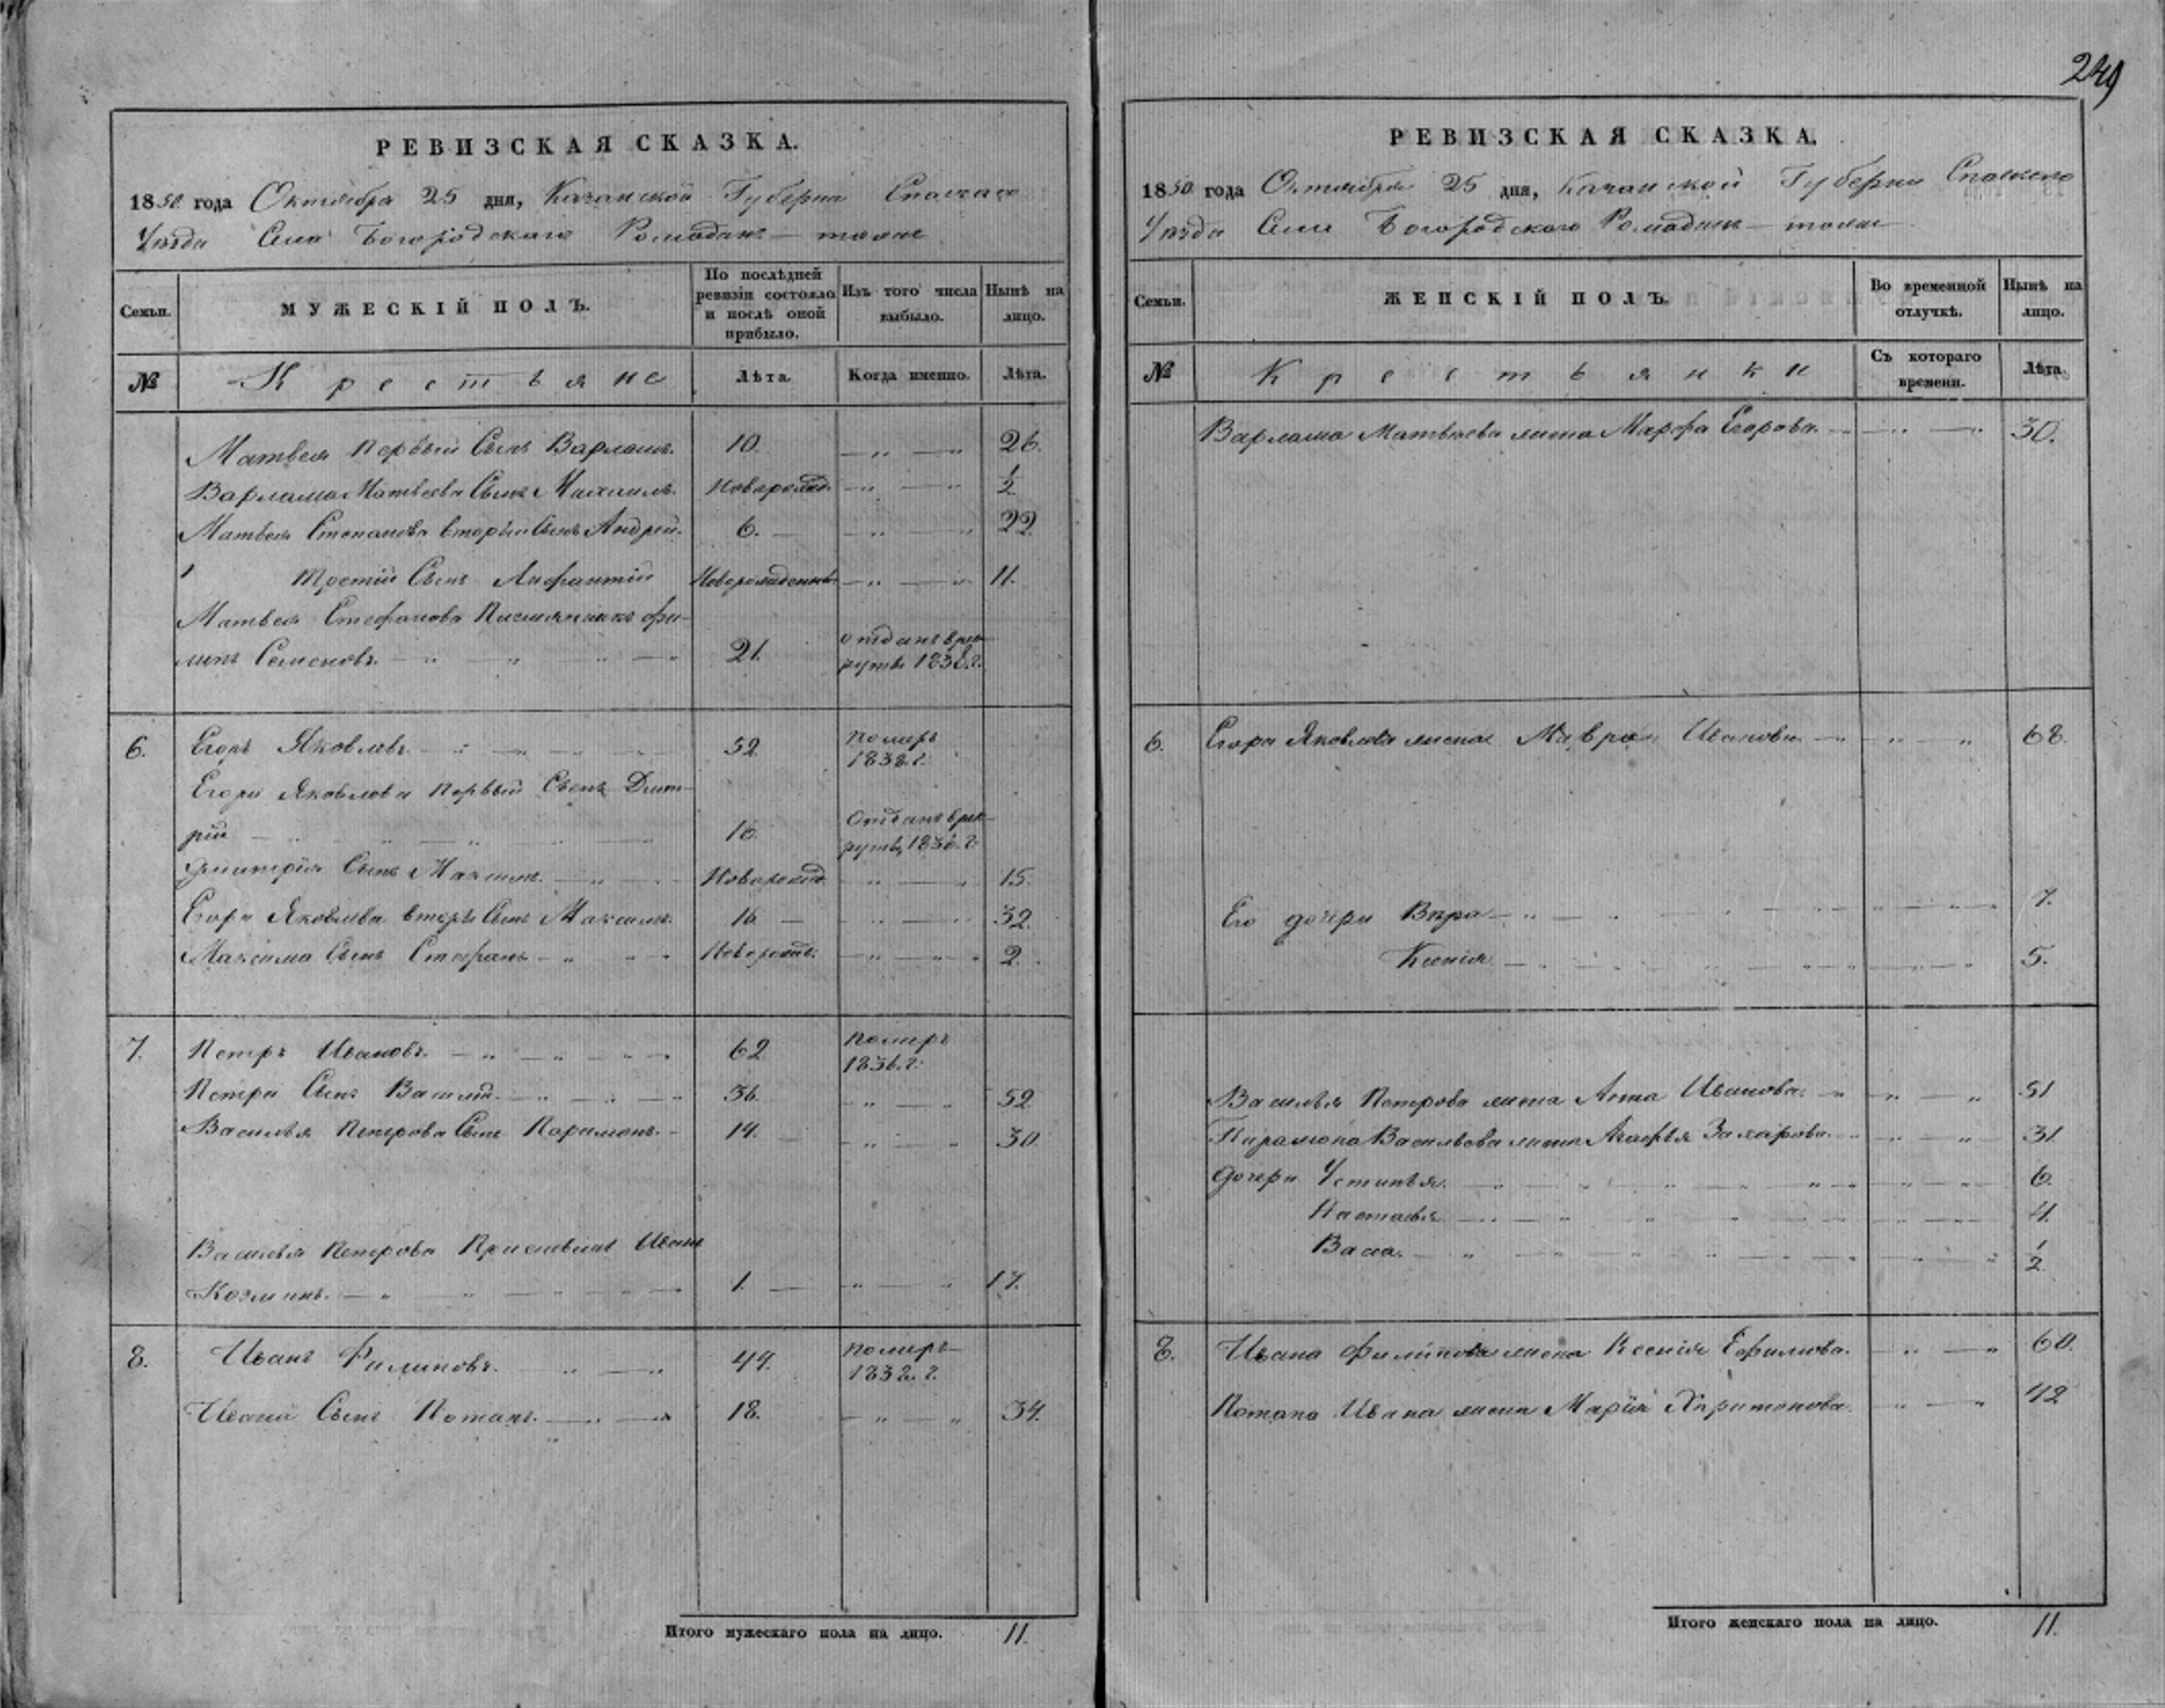 РЕВИЗСКАЯ СКАЗКА.
1850 года Октября 25 дня, Казанской Губернии Спаскаго
Уѣзда Села Богородскаго Ромодан тожъ
Семьи.
МУЖЕСКІЙ ПОЛЪ.
По послѣдней ревизіи состояло и послѣ оной прибыло.
Изъ того числа выбыло.
Нынѣ на лицо.
№
Крестьяне
Лѣта.
Когда именно.
Лѣта.
Матвея первый Сынъ Варламъ. 10. 26.
Варлама Матвеева Сынъ Михаилъ. Новорожд. 1/2
Матвея Степанова вторый Сынъ Андрей. 6. 22.
Третій Сынъ Новорожденъ 11.
Матвея Стефанова Племянникъ Фи-
липъ Семеновъ. 21. отданъ врек-
руты 1838.г.
6. Егоръ Яковлевъ 52 померъ
1838.г.
Егора Яковлева первый Сынъ Дмит-
рій 16. Отданъ врек-
руты 1836.г.
Дмитрія Сынъ Новорожд 15.
Егора Яковлева вторъ Сынъ Максимъ. 16 32.
Максима Сынъ Стефанъ Новорожд. 2.
7. Петръ Ивановъ. 62 померъ
1836.г.
Петра Сынъ Василій. 36. 52
Василья Петрова Сынъ Парамонъ. 14. 30.
Василья Петрова Иванъ
Козминъ. 1. 17.
8. Иванъ Филиповъ. 44. померъ
1832.г.
Ивана Сынъ Потапъ. 18. 34.
Итого мужескаго пола на лицо. 11.
249
РЕВИЗСКАЯ СКАЗКА.
1850 года Октября 25 дня, Казанской Губернии Спаскаго
Уѣзда Села Богородскаго Ромодан тожъ
Семьи.
ЖЕНСКІЙ ПОЛЪ.
Во временной отлучкѣ.
Нынѣ на лицо.
№
Крестьянки
Съ котораго времени.
Лѣта.
Варлама Матвѣева жена Марфа Егорова. 30.
6. Егора Яковлева жена Мавра Иванова 68.
Его дочери Вѣра 7.
Ксенія 5.
Василья Петрова жена Анна Иванова. 51
Парамона Васильева жена Агафья Захарова. 31.
Дочери Устинья. 6.
Настасья 4.
Васа. 1/2
8. Ивана Филипова жена Ксенія Ефимова. 60.
Потапа Ивана жена Марія Харитонова. 42
Итого женскаго пола на лицо. 11.